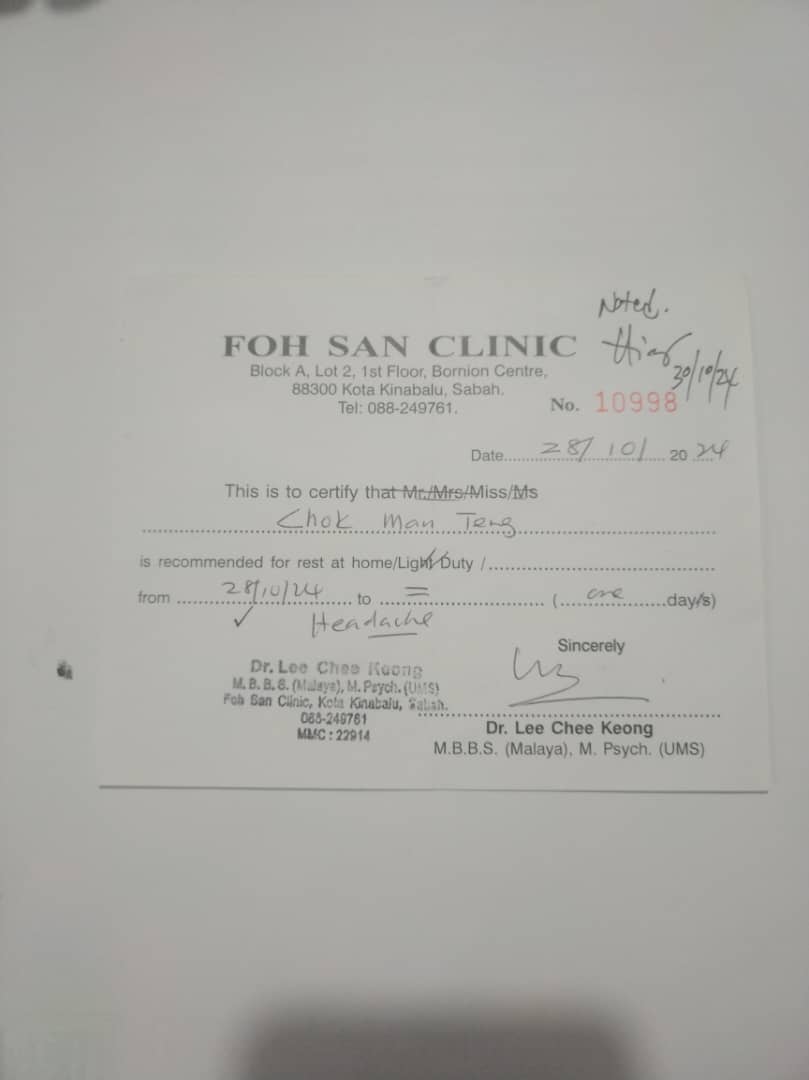 Noted.
FOH SAN CLINIC
Block A, Lot 2, 1st Floor, Bornion Centre,
88300 Kota Kinabalu, Sabah.
Tel: 088-249761.
30/10/24
No. 10998
Date 28/10/ 20 24
This is to certify that Mr./Mrs/Miss/Ms
Chok Man Teng
is recommended for rest at home/Light Duty /
from 28/10/24 to = ( one day/s)
✓ Headache
Sincerely
Dr. Lee Chee Keong
M.B.B.S. (Malaya), M. Psych. (UMS)
Foh San Clinic, Kota Kinabalu, Sabah.
088-249761
MMC : 22914
Dr. Lee Chee Keong
M.B.B.S. (Malaya), M. Psych. (UMS)